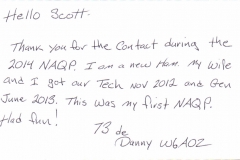 Hello Scott:
Thank you for the Contact during the
2014 NAQP. I am a new Ham. My Wife
and I got our Tech Nov 2012 and Gen
June 2013. This was my first NAQP.
Had fun!
73 de
Danny W6AOZ